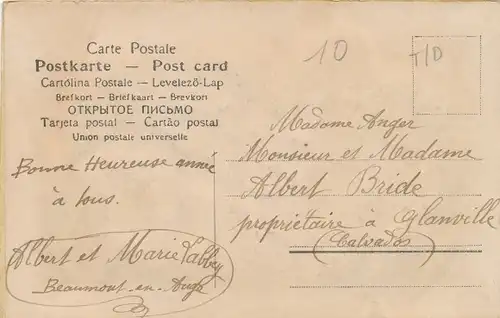 Carte Postale
Postkarte — Post card
Cartolina Postale — Levelező-Lap
Brefkort — Briefkaart — Brevkort
ОТКРЫТОЕ ПИСЬМО
Tarjeta postal — Cartão postal
Union postale universelle
10
T/D
Bonne Heureuse année
à tous.
Albert et Marie Labbey
Beaumont-en-Auge
Madame Anger
Monsieur et Madame
Albert Bride
propriétaire à Glanville
(Calvados)